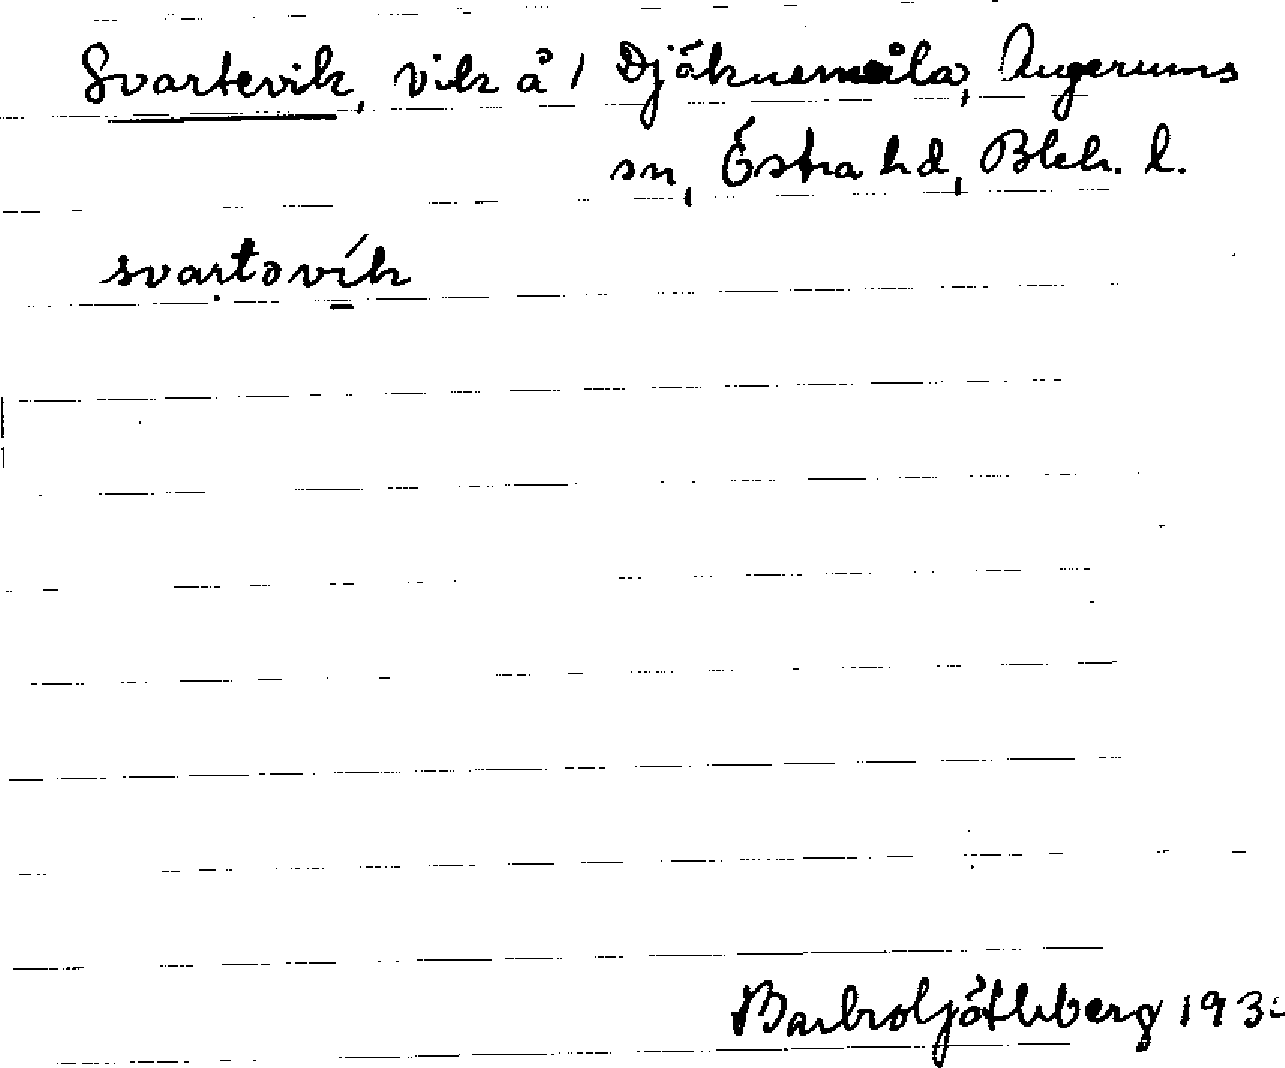 Svartevik, vik å 1 Djäknemåla, Augerums
sn, Östra hd, Blek. l.
svartəvík
Barbro Ljöthberg 193